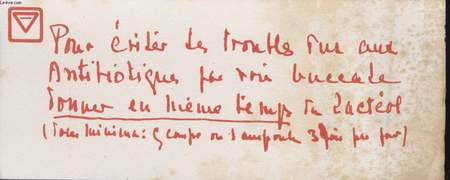 Pour éviter les troubles dus aux
Antibiotiques par voie buccale
Donner en même temps du Lactéol
(Dose minima: 5 comps ou 1 ampoule 3 fois par jour)